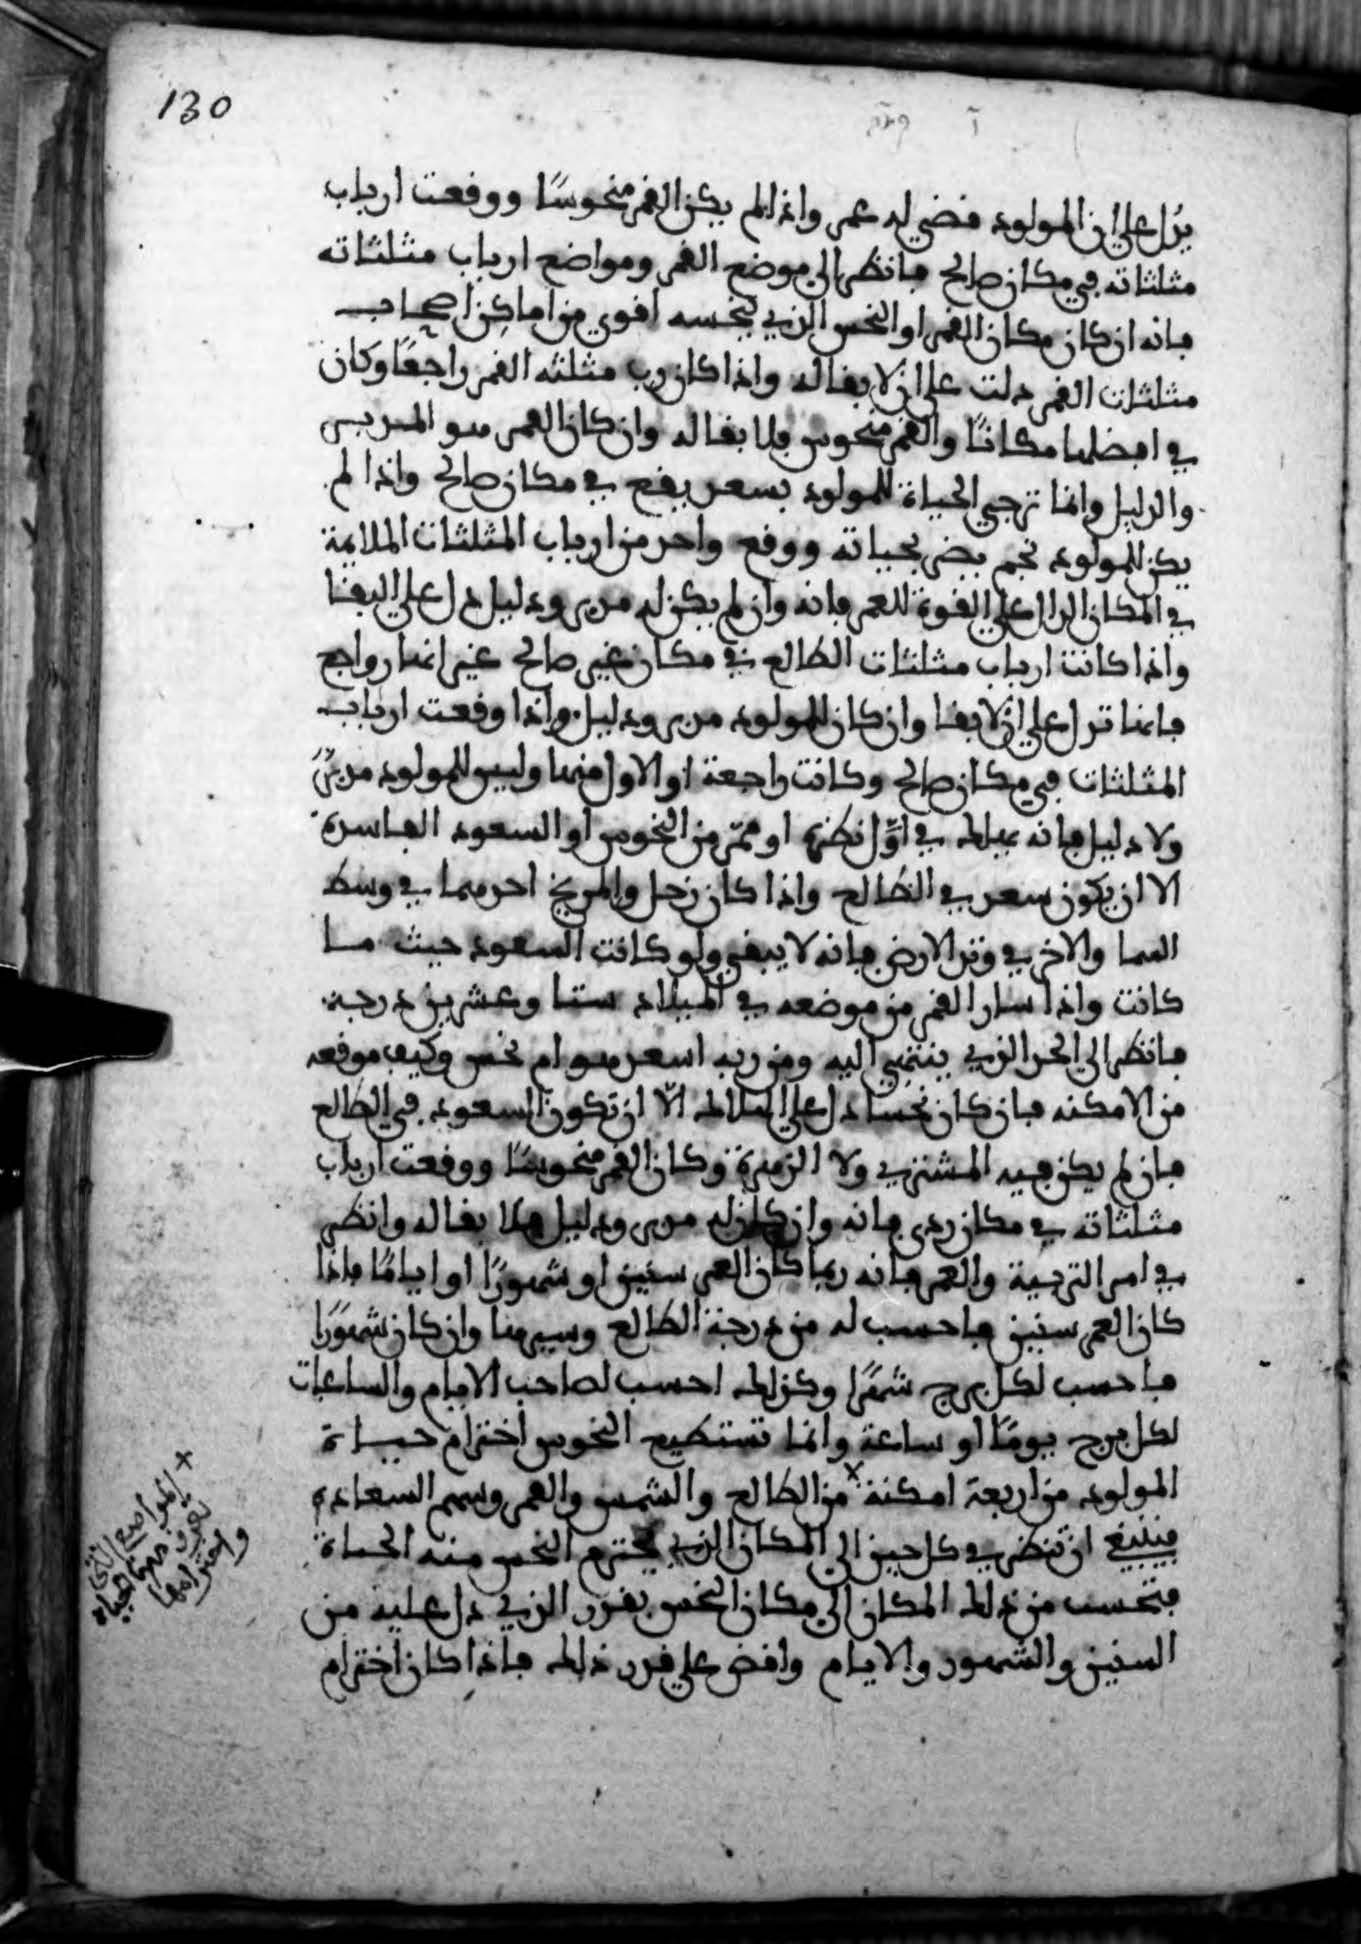 130
يدل علي ان المولود قضي له عمر واذا لم يكن القمر منحوسًا ووقعت ارباب
مثلثاته في مكان صالح فانظر الي موضع القمر ومواضع ارباب مثلثاته
فانه ان كان مكان القمر او النحس الذي ينحسه اقوي من اماكن اصحاب
مثلثات القمر دلت علي ان لا بقا له واذا كان رب مثلثه القمر راجعًا وكان
في افضلها مكانًا والقمر منحوس فلا بقا له وان كان القمر هو المدبر
والدليل وانما ترجي الحياة للمولود بسعد يقع في مكان صالح واذا لم
يكن للمولود نجم يضر بحياته ووقع واحد من ارباب المثلثات الملايمة
في المكان الدال علي القوة للعمر فانه وان لم يكن له مدبر ودليل دل علي البقا
واذا كانت ارباب مثلثات الطالع في مكان غير صالح غير انها رواجع
فانها تدل علي ان لا بقا وان كان للمولود مدبر ودليل واذا وقعت ارباب
المثلثات في مكان صالح وكانت راجعة او الاول منها وليس للمولود مدبرً
ولا دليل فانه يهلك في اوّل نظرة او ممّر من النحوس او السعود الفاسدة
الا ان يكون سعد في الطالع واذا كان زحل والمريخ احدهما في وسط
السما والاخر في وتد الارض فانه لا يبقي ولو كانت السعود حيث ما
كانت واذا سار القمر من موضعه في الميلاد ستا وعشرين درجة
فانظر الي الحد الذي ينتهي اليه ومن ربه اسعد هو ام نحس وكيف موقعه
من الامكنه فان كان نحسا دل علي الهلاك الّا ان تكون السعود في الطالع
فان لم يكن فيه المشتري ولا الزهرة وكان القمر منحوسًا ووقعت ارباب
مثلثاته في مكان ردي فانه وان كان له مدبر ودليل فلا بقا له وانظر
في امر التربية والعمر فانه ربما كان العمر سنين او شهورًا او ايامًا فاذا
كان العمر سنين فاحسب له من درجة الطالع وسيرها وان كان شهورًا
فاحسب لكل برج شهرًا وكذلك احسب لصاحب الايام والساعات
لكل برج يومًا او ساعة وانما تستطيع النحوس اخترام حياة
المولود من اربعة امكنة من الطالع والشمس والقمر وسهم السعادة
فينبغي ان تنظر في كل حين الي المكان الذي يخترم النحس منه الحياة
فتحسب من ذلك المكان الي مكان النحس بقدر الذي دل عليه من
السنين والشهور والايام واقض علي قدر ذلك فاذا كان اخترام
المواضع التي
تعرف منها الحياه
واخترامها